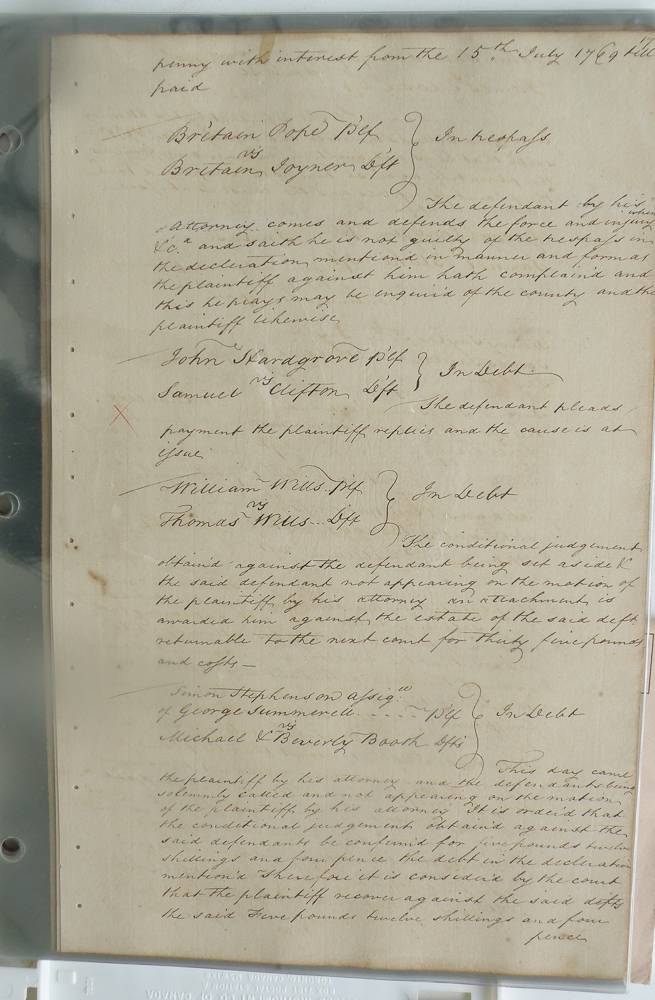 penny with interest from the 15.th July 1769 till
paid
Britain Pope Plf
vs
Britain Joyner Dft
In trespass
The defendant by his
Attorney comes and defends the force and injury
when
&c.a and saith he is not guilty of the trespass in
the decleration mentiond in manner and form as
the plaintiff against him hath complaind and
this he prays may be enquird of the county and the
plaintiff likewise
John Hardgrove Plf
vs
Samuel Clifton Dft
In Debt
The defendant pleads
payment the plaintiff replies and the cause is at
issue
William Wills Plf
vs
Thomas Wills .. Dft
In Debt
The conditional judgement
obtaind against the defendant being set aside &
the said defendant not appearing on the motion of
the plaintiff by his attorney an attachment is
awarded him against the estate of the said deft
returnable to the next court for thirty five pounds
and costs –
Simon Stephenson assig.ee
of George Summerell - - - - Plf
vs
Michael & Beverly Booth Dfts
In Debt
This day came
the plaintiff by his attorney and the defendants being
solemnly called and not appearing on the motion
of the plaintiff by his attorney It is orderd that
the conditional judgement obtaind against the
said defendants be confirmd for five pounds twelve
shillings and four pence the debt in the decleration
mention'd Therefore it is considerd by the court
that the plaintiff recover against the said defts
the said Five pounds twelve shillings and four
pence